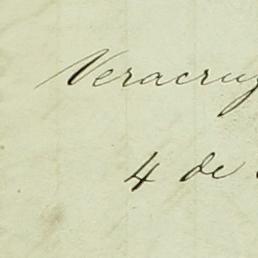 Veracruz
4 de